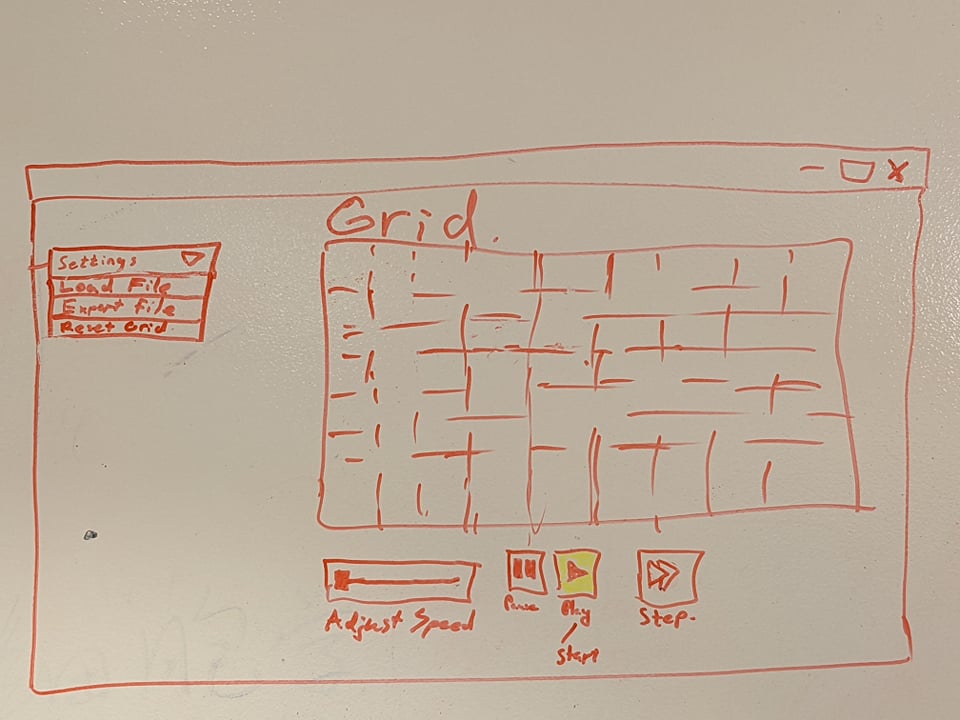 Grid.
Settings
Load File
Export file
Reset Grid
Adjust Speed
Pause
Play
/
Start
Step.